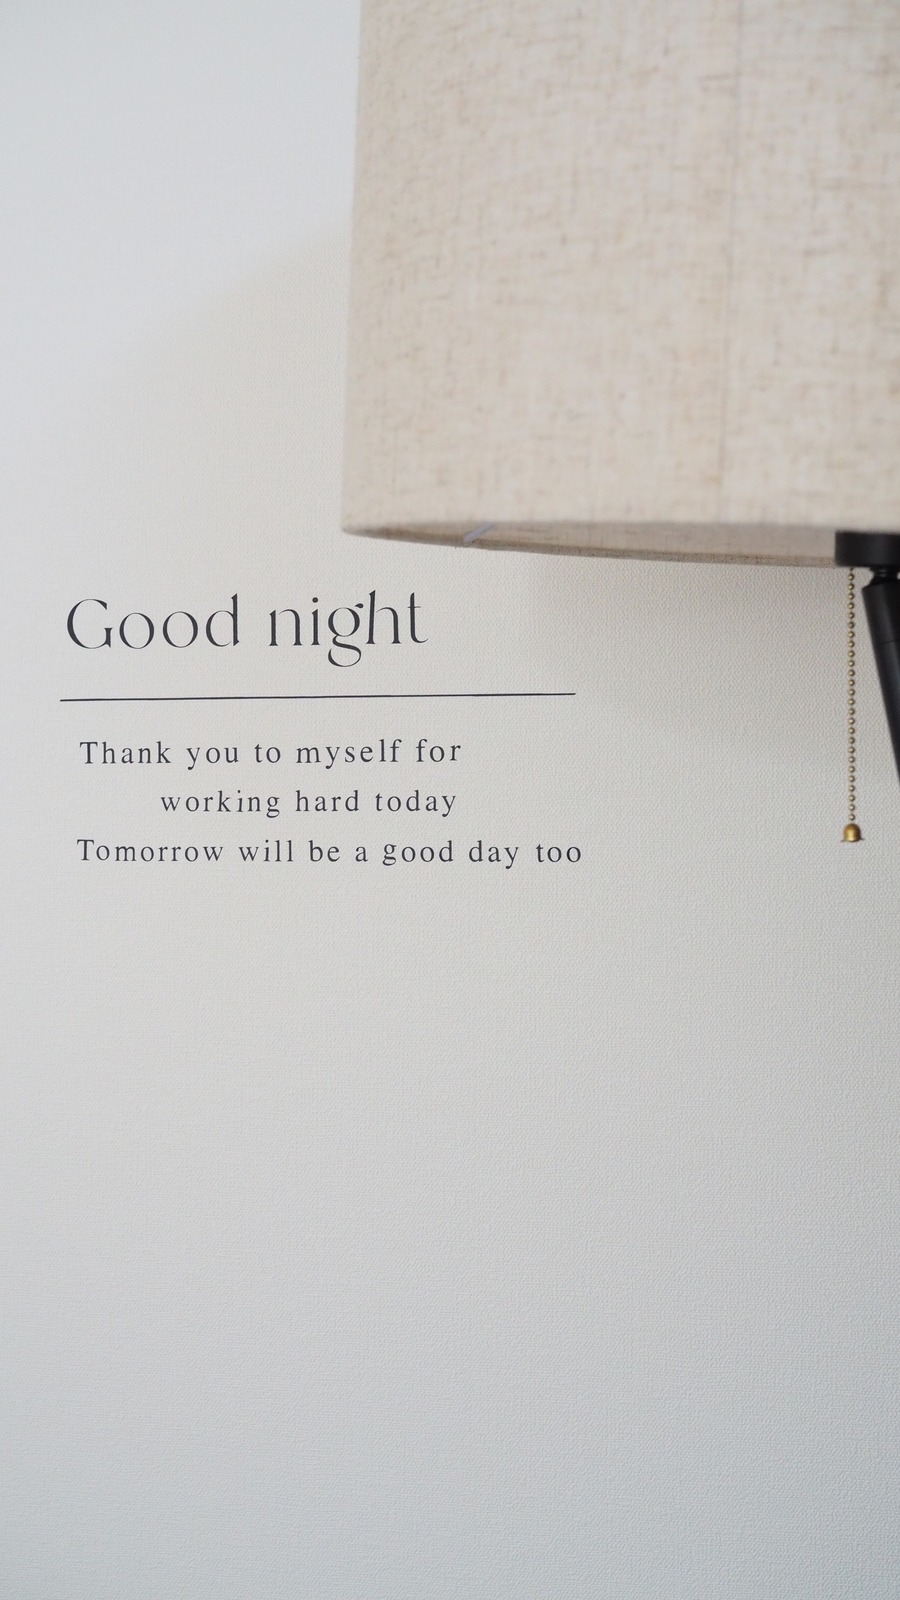 Good night
Thank you to myself for
working hard today
Tomorrow will be a good day too